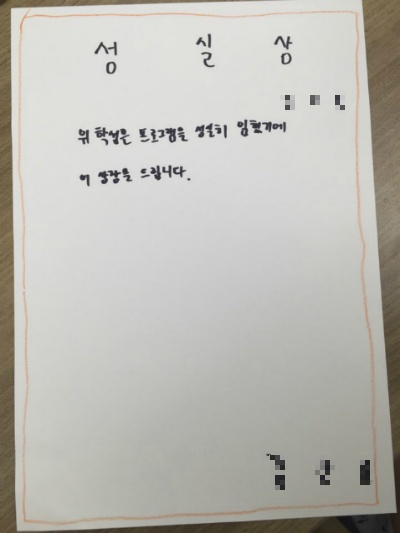 성 실 상
위 학생은 프로그램을 성실히 임했기에
이 상장을 드립니다.